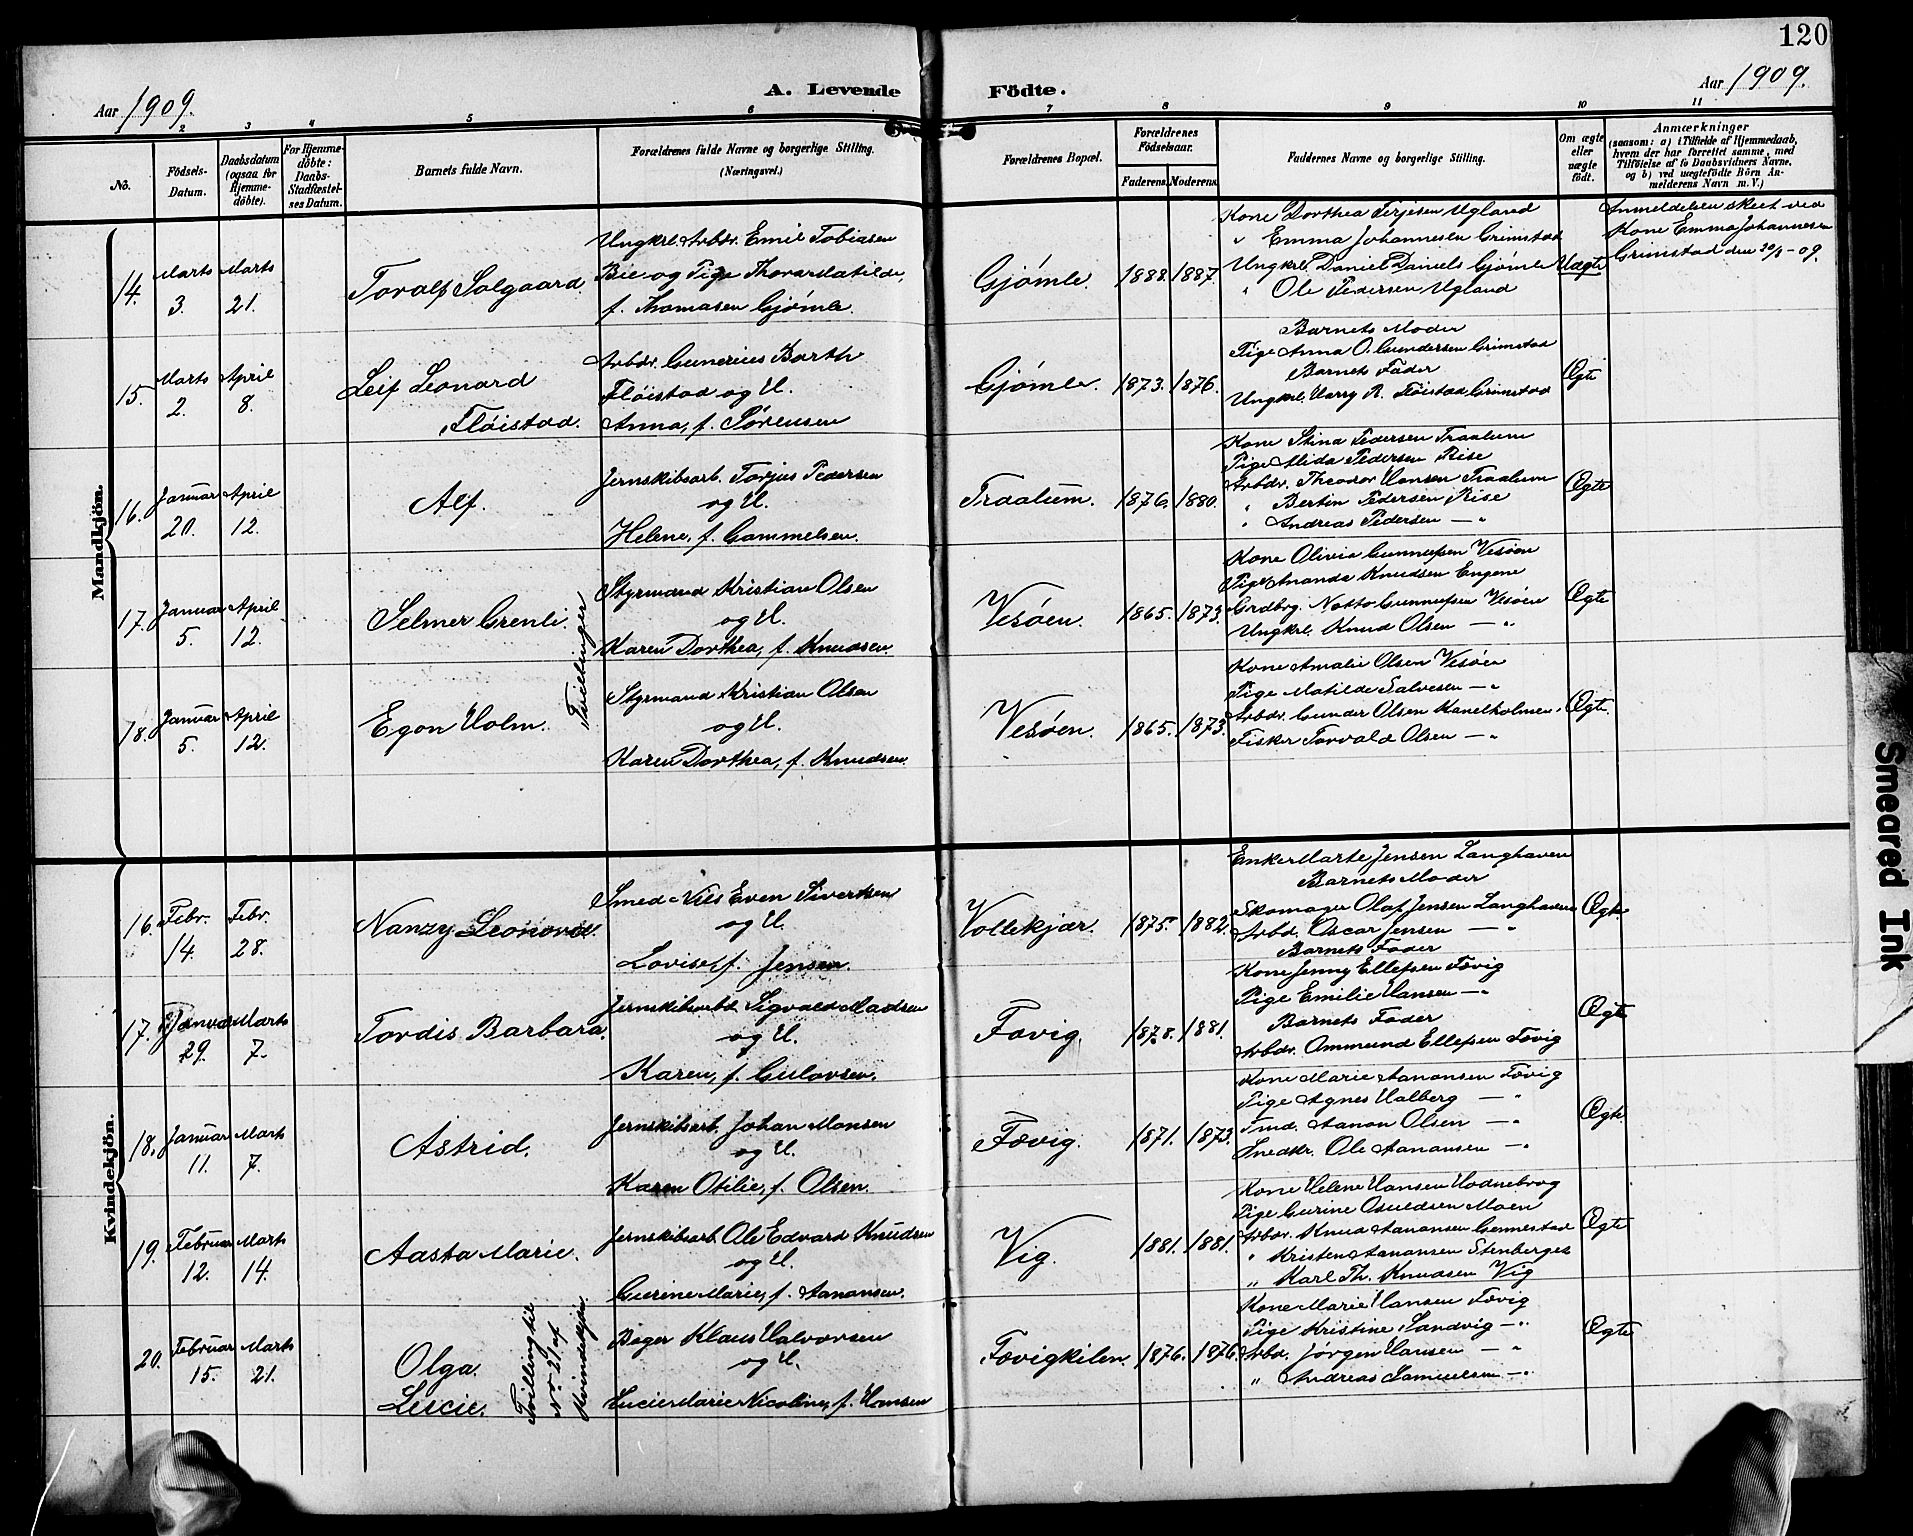 120
Aar 1909.
A. Levende Födte.
Aar 1909.
2 3 4 5 6 7 8 9 10 11
No.
Födsels-Datum.
Daabsdatum (ogsaa for Hjemme-döbte).
For Hjemme-döbte: Daabs-Stadfæstel-ses Datum.
Barnets fulde Navn.
Forældrenes fulde Navne og borgerlige Stilling. (Næringsvei.)
Forældrenes Bopæl.
Forældrenes Födselsaar.
Faderens. Moderens.
Faddernes Navne og borgerlige Stilling.
Om ægte eller uægte födt.
Anmærkninger
(saasom: a) i Tilfælde af Hjemmedaab, hvem der har forrettet samme, med Tilföielse af to Daabsvidners Navne, og b) ved uægtefödte Börn Anmelderens Navn m. V.)
Mandkjön.
14. Marts 3. Marts 21.
Toralf Solgaard.
Ungkrl. Arbdr. Emil Tobiasen
Bie og Pige Thora Matilde,
f. Thomasen Gjømle.
Gjømle. 1888. 1887.
Kone Dorthea Terjesen Ugland
" Emma Johannesen Grimstad
Ungkrl. Daniel Daniels. Gjømle
" Ole Pedersen Ugland
Uægte
Anmeldelsen skeet ved
Kone Emma Johannesen
Grimstad den
15. Marts 2. April 8.
Leif Leonard
Fløistad.
Arbdr. Gunerius Barth
Fløistad og H.
Anna, f. Sørensen
Gjømle. 1873. 1876.
Barnets Moder
Pige Anna O. Gundersen Grimstad
Barnets Fader
Ungkrl. Harry R. Fløistad Grimstad
Ægte
16. Januar 20. April 12.
Alf.
Jernskibsarb. Torjus Pedersen
og H.
Helene, f. Gammelsen.
Traalum. 1876. 1880.
Kone Stina Pedersen Traalum
Pige Alida Pedersen Rise
Arbdr. Theodor Hansen Traalum
" Bertin Pedersen Rise
" Andreas Pedersen — "
Ægte
17. Januar 5. April 12.
Selmer Grenli.
Tvillinger
Styrmand Kristian Olsen
og H.
Karen Dorthea, f. Knudsen.
Vesøen. 1865. 1873.
Kone Olivia Gunnufsen Vesøen
Pige Ananda Knudsen Engene
Grdbrg. Notto Gunnufsen Vesøen
Ungkrl. Knud Olsen — "
Ægte
18. Januar 5. April 12.
Egon Holm.
Styrmand Kristian Olsen
og H.
Karen Dorthea, f. Knudsen.
Vesøen. 1865. 1873.
Kone Amalie Olsen Vesøen
Pige Matilde Salvesen — "
Arbdr. Gunder Olsen Kanelholmen.
Fisker Torvald Olsen — "
Ægte.
Kvindekjön.
16. Febr. 14. Febr. 28.
Nanzy Leonora.
Smed Nils Even Sivertsen
og H.
Lovise, f. Jensen.
Vollekjær. 1875. 1882.
Enke Marte Jensen Langhaven
Barnets Moder
Skomager Olaf Jensen Langhaven
Arbd. Oscar Jensen — "
Barnets Fader
Ægte
17. Januar 29. Marts 7.
Tordis Barbara.
Jernskibsarbd. Sigvald Madsen
og H.
Karen, f. Gulovsen.
Fævig. 1878. 1881.
Kone Jenny Ellefsen Fævig
Pige Emilie Hansen — "
Barnets Fader
Arbdr. Ommund Ellefsen Fævig
Ægte
18. Januar 11. Marts 7.
Astrid.
Jernskibsarb. Johan Monsen
og H.
Karen Otilie, f. Olsen.
Fævig. 1871. 1873.
Kone Marie Aanonsen Fævig
Pige Agnes Halberg — "
Tmd. Aanon Olsen — "
Snedkr. Ole Aanonsen — "
Ægte
19. Februar 12. Marts 14.
Aasta Marie.
Jernskibsarb. Ole Edvard Knudsen
og H.
Gurine Marie, f. Aanonsen.
Vig. 1881. 1881.
Kone Helene Hansen Hodnebrog
Pige Gurine Osuldsen Moen
Arbdr. Knud Aanonsen Gennestad
" Kristen Aanonsen Stenberget
" Karl Th. Knudsen Vig
Ægte
20. Februar 15. Marts 21.
Olga
Lucie.
Tvilling til
No 21 af
Kvindekjøn.
Bager Klaus Halvorsen
og H.
Lucie Marie Nicoline, f. Hansen
Fævigkilen. 1876. 1876.
Kone Marie Hansen Fævig
Pige Kristine Sandvig — "
Arbd. Jørgen Hansen — "
" Andreas Samuelsen — "
Ægte
Smeared Ink